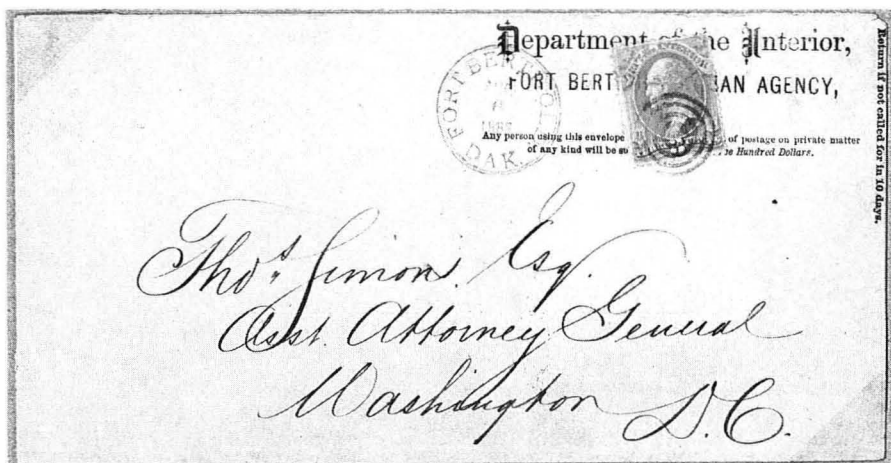 Department of the Interior,
FORT BERT IAN AGENCY,
Any person using this envelope of postage on private matter
of any kind will be su ne Hundred Dollars.
Return if not called for in 10 days.
FORT BERTHOLD
DAK.
Thos. Simon. Esq.
Asst. Attorney General
Washington D.C.